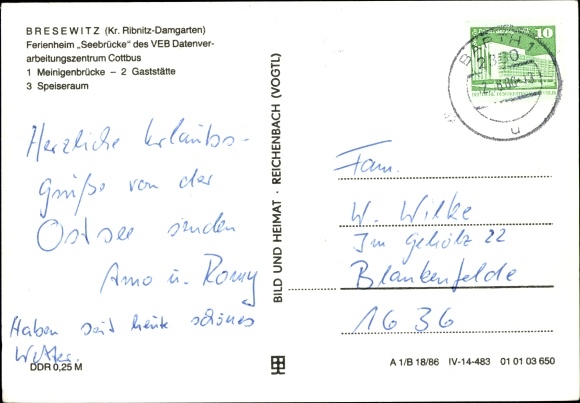 BRESEWITZ (Kr. Ribnitz-Damgarten)
Ferienheim „Seebrücke" des VEB Datenver-
arbeitungszentrum Cottbus
1 Meinigenbrücke – 2 Gaststätte
3 Speiseraum
Herzliche Urlaubs-
grüße von der
Ostsee senden
Arno u. Romy
Haben seit heute schönes
Wetter.
DDR 0,25 M
BILD UND HEIMAT · REICHENBACH (VOGTL)
10
BARTH 1
2380
u
Fam.
W. Wilke
Im Gehölz 22
Blankenfelde
1636
A 1/B 18/86 IV-14-483 01 01 03 650